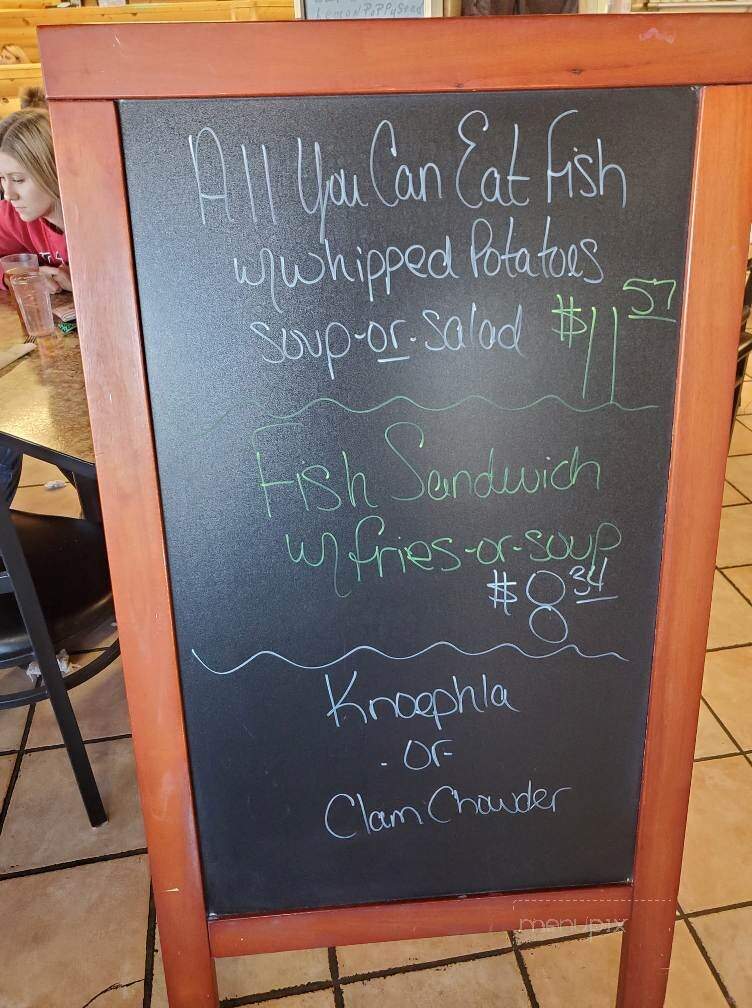 Lemon Poppyseed
All You Can Eat Fish
w/whipped Potatoes
soup-or-salad $11 57
Fish Sandwich
w/fries-or-soup
$8 34
Knoephla
- or -
Clam Chowder
menupix